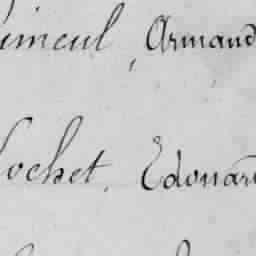 imeul, Armand
ochet, Edouard